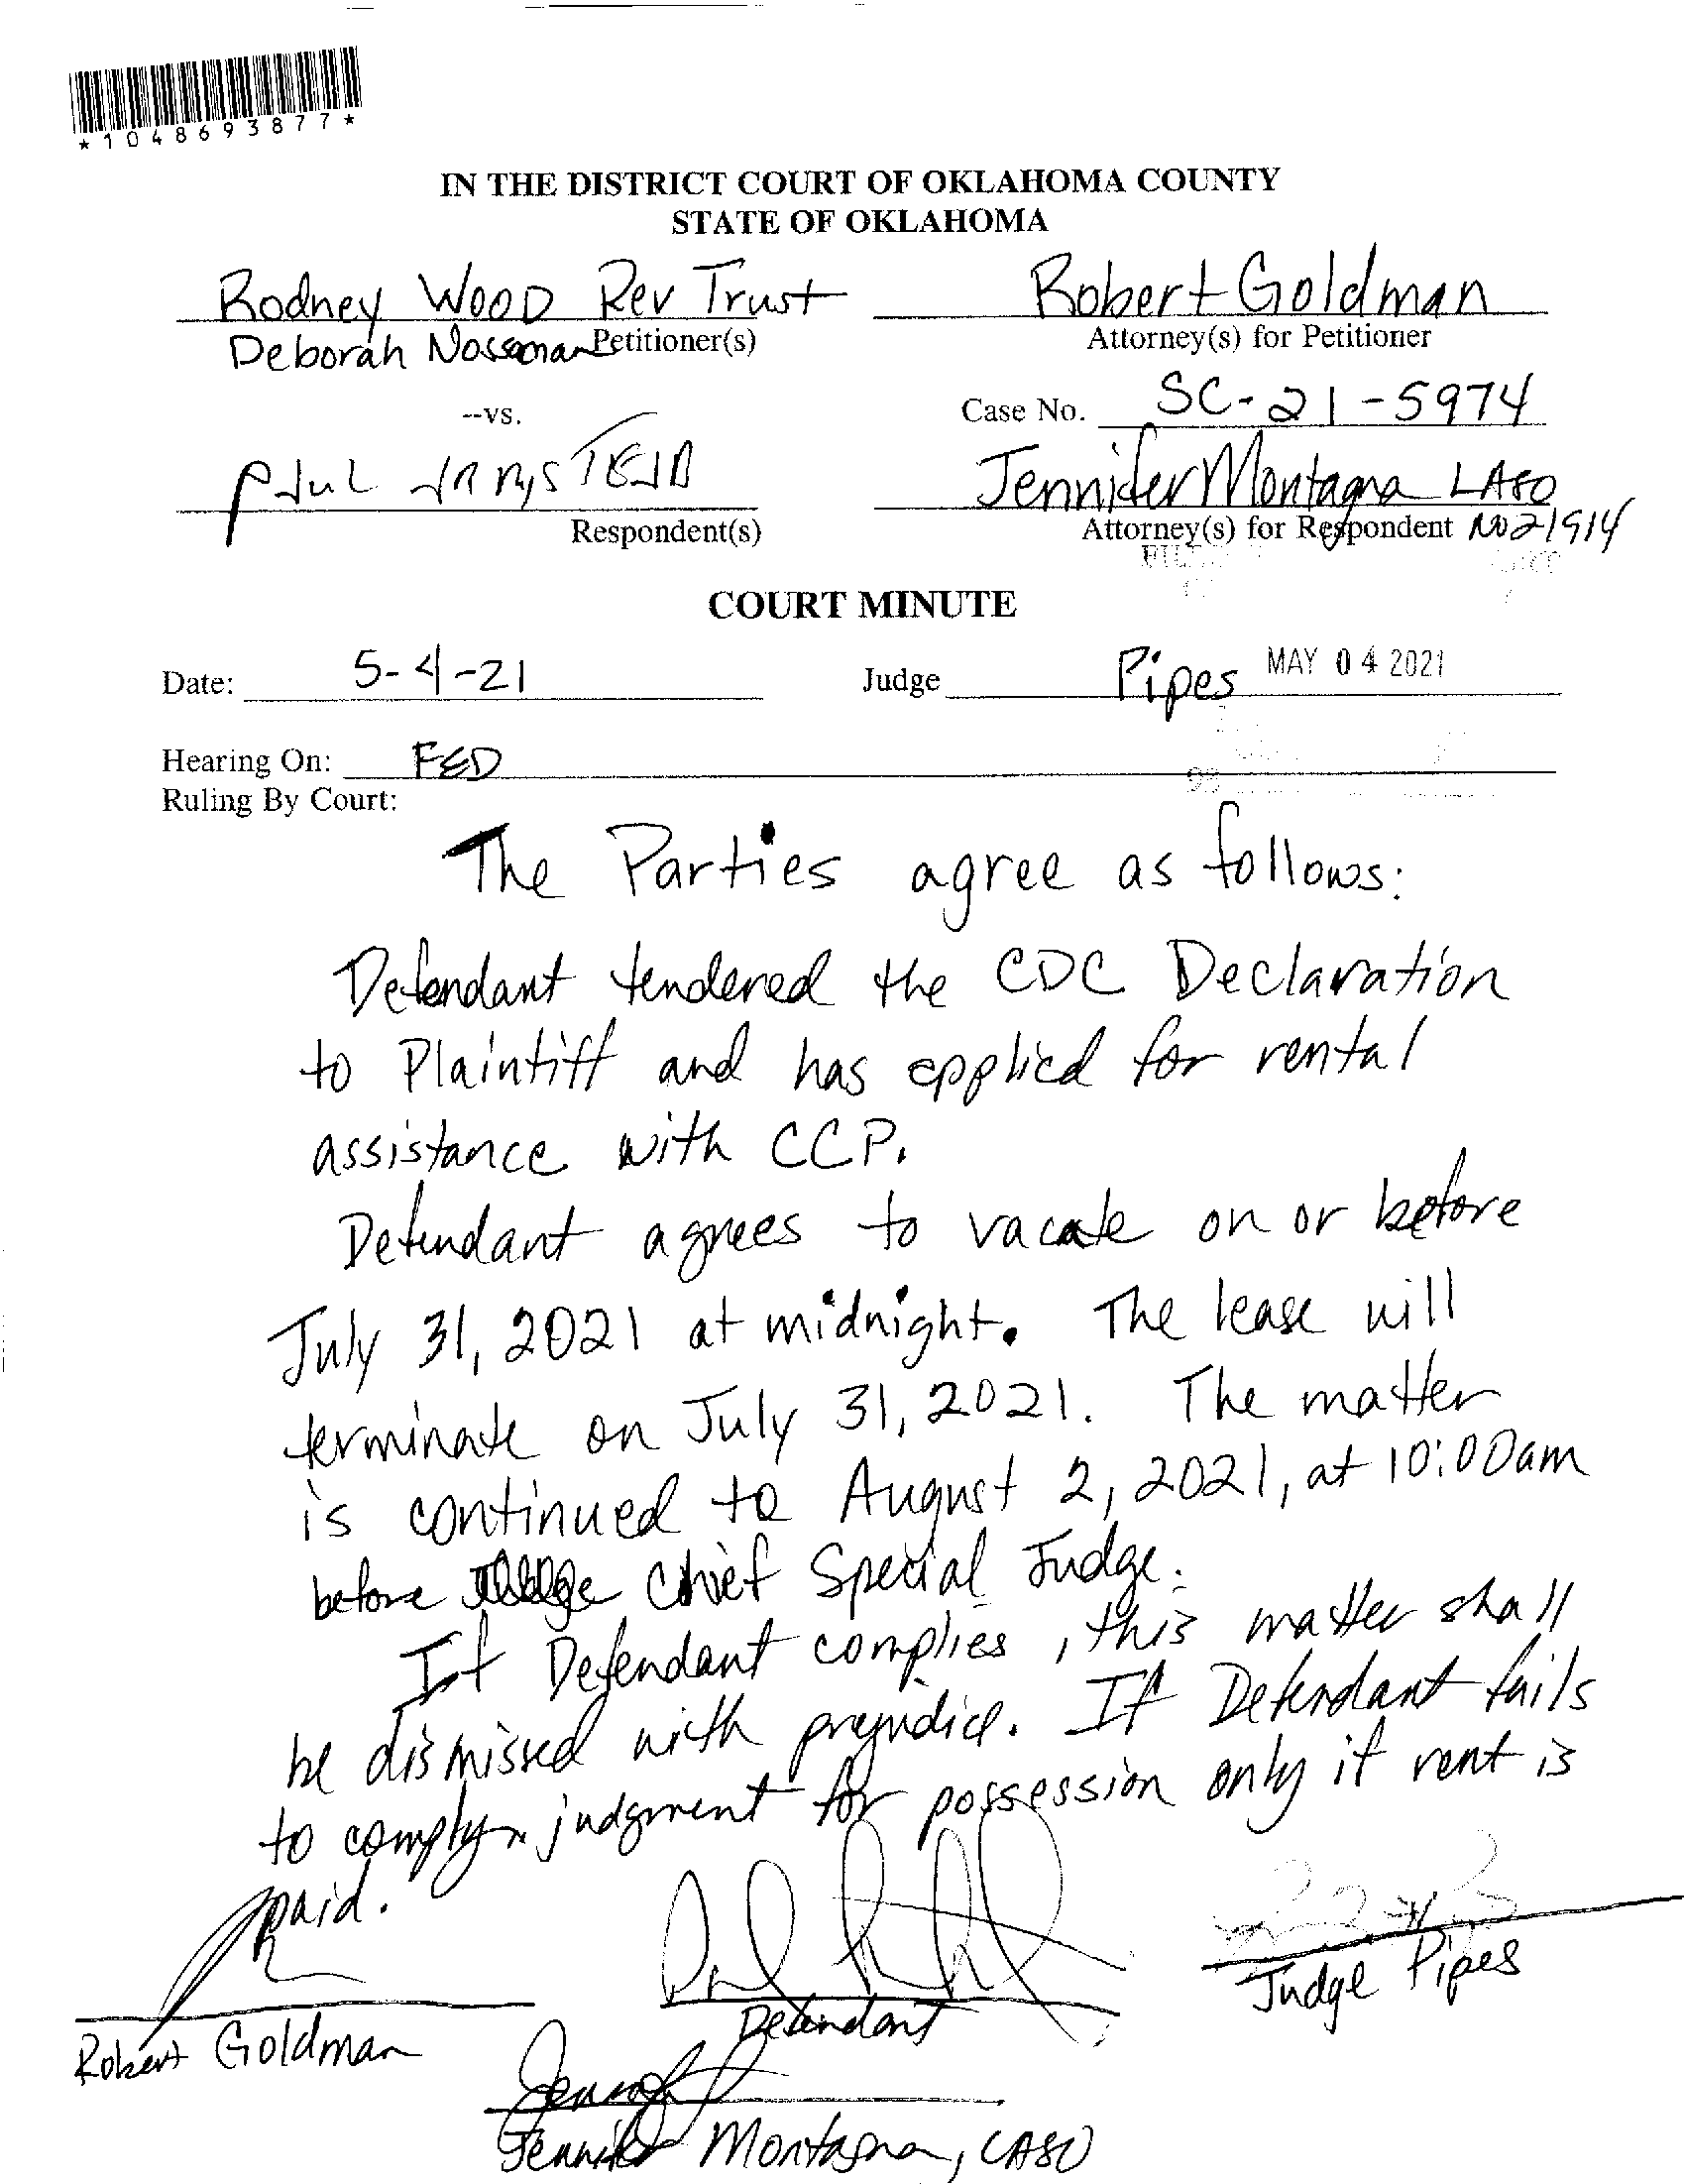 *1048693877*
IN THE DISTRICT COURT OF OKLAHOMA COUNTY
STATE OF OKLAHOMA
Rodney Wood Rev Trust
Deborah Petitioner(s)
Robert Goldman
Attorney(s) for Petitioner
--vs.
Case No. SC-21-5974
Paul
Respondent(s)
Jennifer Montagna LASO
Attorney(s) for Respondent No 21914
COURT MINUTE
Date: 5-4-21
Judge Pipes MAY 04 2021
Hearing On: FED
Ruling By Court:
The Parties agree as follows:
Defendant tendered the CDC Declaration
to Plaintiff and has applied for rental
assistance with CCP.
Defendant agrees to vacate on or before
July 31, 2021 at midnight. The lease will
terminate on July 31, 2021. The matter
is continued to August 2, 2021, at 10:00am
before Chief Special Judge.
If Defendant complies, this matter shall
be dismissed with prejudice. If Defendant fails
to comply, judgment for possession only if rent is
paid.
Robert Goldman
Defendant
Judge Pipes
Jennifer Montagna, LASO